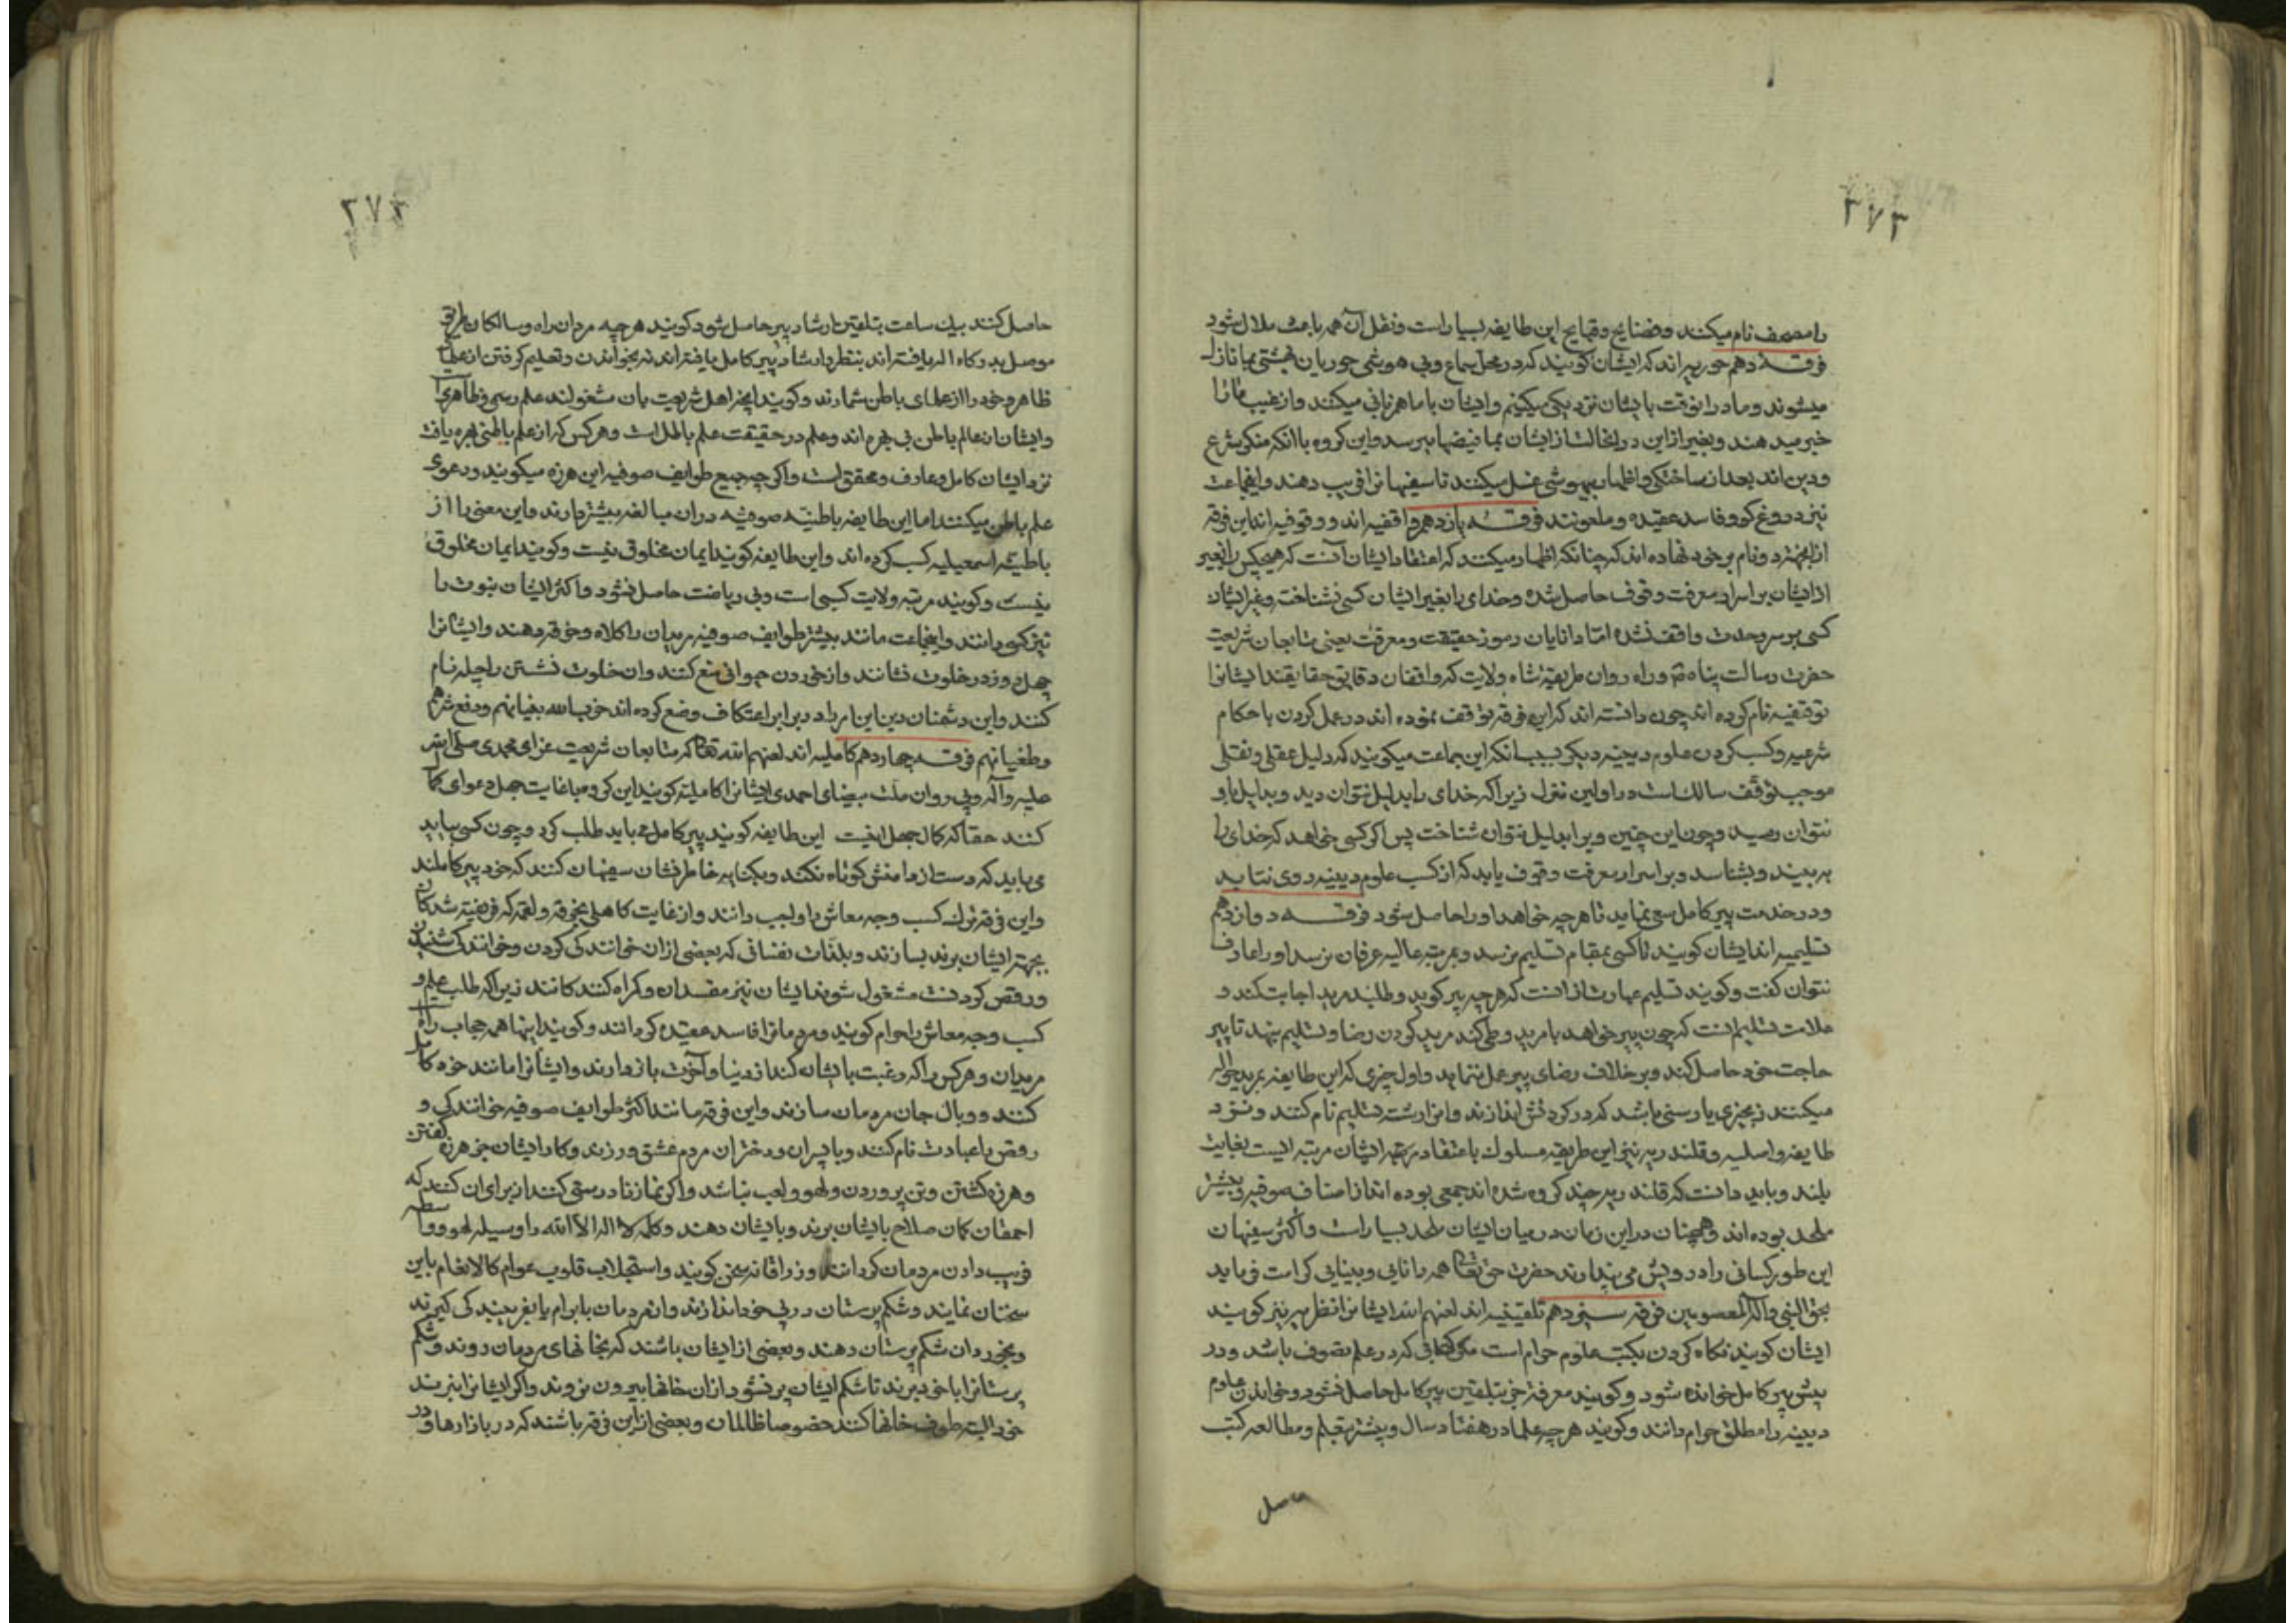 ۳۷۳
را مصحف نام میکنند و فضایح و قبایح این طایفه بسیار است و نقل آن همه باعث ملال شود
فرقه دهم حوریه اند که ایشان کویند که در محل سماع و بی هوشی حوریان بهشتی بما نازل
میشوند و ما در انوقت بایشان نزدیکی میکنیم و ایشان با ما مهربانی میکنند و از غیب ما را
خبر میدهند و بغیر از این در انحالت از ایشان بما فیضها میرسد و این کروه با انکه منکر شرع
و دین اند بعد از ساختکی و اظهار بیهوشی غسل میکنند تا سفیهانرا فریب دهند و اینجماعت
نیز دروغ کو و فاسد عقیده و ملعونند فرقه یازدهم واقفیه اند و وقوفیه اند این فرقه
از انجهت دو نام بر خود نهاده اند که چنانکه اظهار میکنند که اعتقاد ایشان آنست که هیچکس را بغیر
از ایشان بر اسرار معرفت وقوف حاصل نشده و خدای را بغیر ایشان کسی نشناخت و بغیر ایشان
کسی بر سر وحدت واقف نشده امّا دانایان رموز حقیقت و معرفت یعنی متابعان شریعت
حضرت رسالت پناه ص و راه روان طریقه شاه ولایت که واقفان دقایق حقایقند ایشانرا
توقفیه نام کرده اند چون دانسته اند که این فرقه توقف نموده اند در عمل کردن باحکام
شرعیه و کسب کردن علوم دینیه دیکر بسبب انکه این جماعت میکویند که دلیل عقلی و نقلی
موجب توقف سالک است در اولین منزل زیرا که خدای را بدلیل نتوان دید و بدلیل باو
نتوان رسید و چون این چنین و برا بدلیل نتوان شناخت پس اکر کسی خواهد که خدای را
به بیند و بشناسد و بر اسرار معرفت وقوف یابد باید که از کسب علوم دینیه روی نتابد
و در خدمت پیر کامل سعی نماید تا هر چه خواهد او را حاصل شود فرقه دوازدهم
تسلیمیه اند ایشان کویند تا کسی بمقام تسلیم نرسد و بمرتبه عالیه عرفان نرسد او را عارف
نتوان کفت و کویند تسلیم عبارت از آنست که هر چه پیر کوید و طلبد مرید اجابت کند و
علامت تسلیم انست که چون پیر خواهد با مرید وطی کند مرید کردن رضا و تسلیم بنهد تا پیر
حاجت خود حاصل کند و بر خلاف رضای پیر عمل ننماید و اول چیزی که این طایفه بمرید حواله
میکنند زنجیری یا رسنی باشد که در کردنش اندازند و انرا رشته تسلیم نام کنند و نزد
طایفه واصلیه و قلندریه نیز این طریقه مسلوک باعتقاد ایشان مرتبه ایست بغایت
بلند و باید دانست که قلندریه چند کروه شده اند جمعی بوده اند از اصناف صوفیه و بیشتر
ملحد بوده اند و همچنان در این زمان در میان ایشان ملحد بسیار است و اکثر سفیهان
این طور کسانی را درویش می پندارند حضرت حق تعالی همه را دانایی و بینایی کرامت فرماید
بحق النبی و آله المعصومین فرقه سیزدهم تلقینیه اند لعنهم الله ایشانرا نظریه نیز کویند
ایشان کویند نکاه کردن بکتب علوم حرام است مکر کتابی که در علم تصوف باشد و در
پیش پیر کامل خوانده شود و کویند معرفة جز بتلقین پیر کامل حاصل نشود و خواندن علوم
دینیه را مطلق حرام دانند و کویند هر چه علما در هفتاد سال و بیشتر بتعلیم و مطالعه کتب
حاصل
۳۷۴
حاصل کنند بیک ساعت بتلقین و ارشاد پیر حاصل شود کویند هر چه مردان راه و سالکان طریق
موصل بدرکاه اله یافته اند بنظر و ارشاد پیر کامل یافته اند نه بخواندن و تعلیم کرفتن از علمای
ظاهر و خود را از علمای باطن شمارند و کویند انچه اهل شریعت بان مشغولند علم رسمی و ظاهری
و ایشان از عالم باطن بی بهره اند و علم در حقیقت علم باطل است و هر کس که از علم باطنی بهره یافت
نزد ایشان کامل و عارف و محقق است و اکر چه جمیع طوایف صوفیه این هرزه میکویند و دعوی
علم باطن میکنند اما این طایفه باطنیه صوفیه در ان مبالغه بیشتر دارند و این معنی را از
باطنیه اسمعیلیه کسب کرده اند و این طایفه کویند ایمان مخلوق نیست و کویند ایمان مخلوق
نیست و کویند مرتبه ولایت کسبی است و بی ریاضت حاصل نشود و اکثر ایشان نبوت را
نیز کسبی دانند و اینجماعت مانند بیشتر طوایف صوفیه مریدان را کلاه و خرقه دهند و ایشانرا
چهل روز در خلوت نشانند و از خوردن حیوانی منع کنند و ان خلوت نشستن را چله نام
کنند و این دشمنان دین این را در برابر اعتکاف وضع کرده اند خرب الله بنیانهم و دفع شرهم
و طغیانهم فرقه چهاردهم کاملیه اند لعنهم الله تعالی که متابعان شریعت غرای محمدی صلی الله
علیه و آله و پی روان ملت بیضای احمدی ایشانرا کاملیه کویند این کروه با غایت جهل دعوای کمال
کنند حقا که کمال جهل اینست این طایفه کویند پیر کامل می باید طلب کرد و چون کسی بیابد
می باید که دست از دامنش کوتاه نکند و بکنایه خاطر نشان سفیهان کنند که خود پیر کاملند
و این فرقه ترک کسب وجه معاش را واجب دانند و از غایت کاهلی بخرقه و لقمه که فریفته شدکان
بجهة ایشان برند بسازند و بلذّات نفسانی که بعضی از ان خوانندکی کردن و خوانندکی شنیدن
و رقص کردنست مشغول شوند ایشان نیز مفسدان و کمراه کنندکانند زیرا که طلب علم و
کسب وجه معاش را حرام کویند و مردمانرا فاسد عقیده کردانند و کویند اینها همه حجاب راه است
مریدان و هر کس را که رغبت بایشان کند از دنیا و آخرت باز دارند و ایشانرا مانند خود کامل
کنند و وبال جان مردمان سازند و این فرقه مانند اکثر طوایف صوفیه خوانندکی و
رقص را عبادت نام کنند و با پسران و دختران مردم عشق ورزند و کار ایشان جز هرزه کفتن
و هرزه کشتن و تن پروردن و لهو و لعب نباشد و اکر نماز نادرستی کنند از برای ان کنند که
احمقان کمان صلاح بایشان برند و بایشان دهند و کلمه لا اله الا الله را وسیله لهو و واسطه
فریب دادن مردمان کردانند و زراقانه سخن کویند و استجلاب قلوب عوام کالانعام باین
سخنان نمایند و شکم پرستان در پی خود اندازند و از مردمان بابرام یا بفریب چیزکی کیرند
و بخورد ان شکم پرستان دهند و بعضی از ایشان باشند که بخانهای مردمان روند و شکم
پرستانرا با خود برند تا شکم ایشان پر نشود از ان خانها بیرون نروند و اکر ایشانرا نبرند
خود البته طوف خانها کنند خصوصا ظالمان و بعضی از این فرقه باشند که در بازارها و در